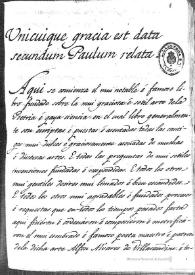 Unicuique gracia est data
secundum Paulum relata.
Aqui se comiença el muy notable é famoso li-
bro fundado sobre la muy graciosa é sotil arte de la
Poetria é gaya sciencia en el qual libro generalmente
son escriptas é puestas é asentadas todas las cantigas
muy dulces é graciosamente assonadas de muchas
é diversas artes. E todas las preguntas de muy sotiles
invenciones fundadas é respondidas. E todos los otros
muy gentiles desires muy limados é bien escandidos.
E todos los otros muy agradables é fundados procesos
é requestas que en todos los tiempos passados fasta
aqui fisieron é ordenaron é composieron é metrifica-
ron el muy esmerado é famoso poeta maestro é patron
de la dicha arte Alfon Alvares de Villasandino é to-